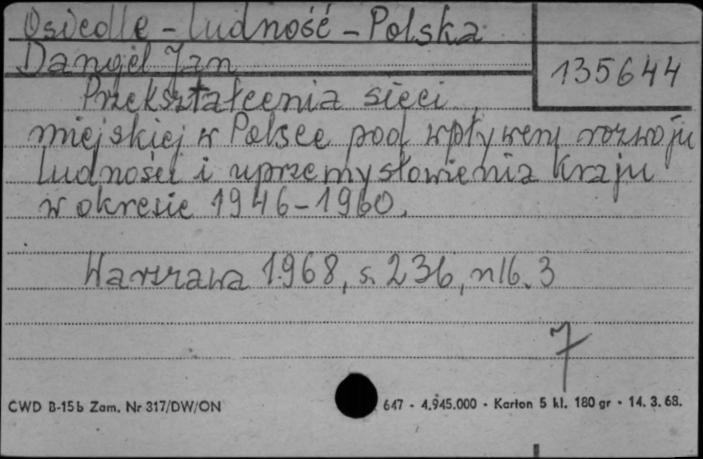 Osiedle - ludność - Polska
Dangel Jan
135644
Przekształcenia sieci
miejskiej w Polsce pod wpływem rozwoju
ludności i uprzemysłowienia kraju
w okresie 1946-1960.
Warszawa 1968, s. 236, nlb. 3
7
CWD B-15b Zam. Nr 317/DW/ON 647 - 4.945.000 - Karton 5 kl. 180 gr - 14. 3. 68.